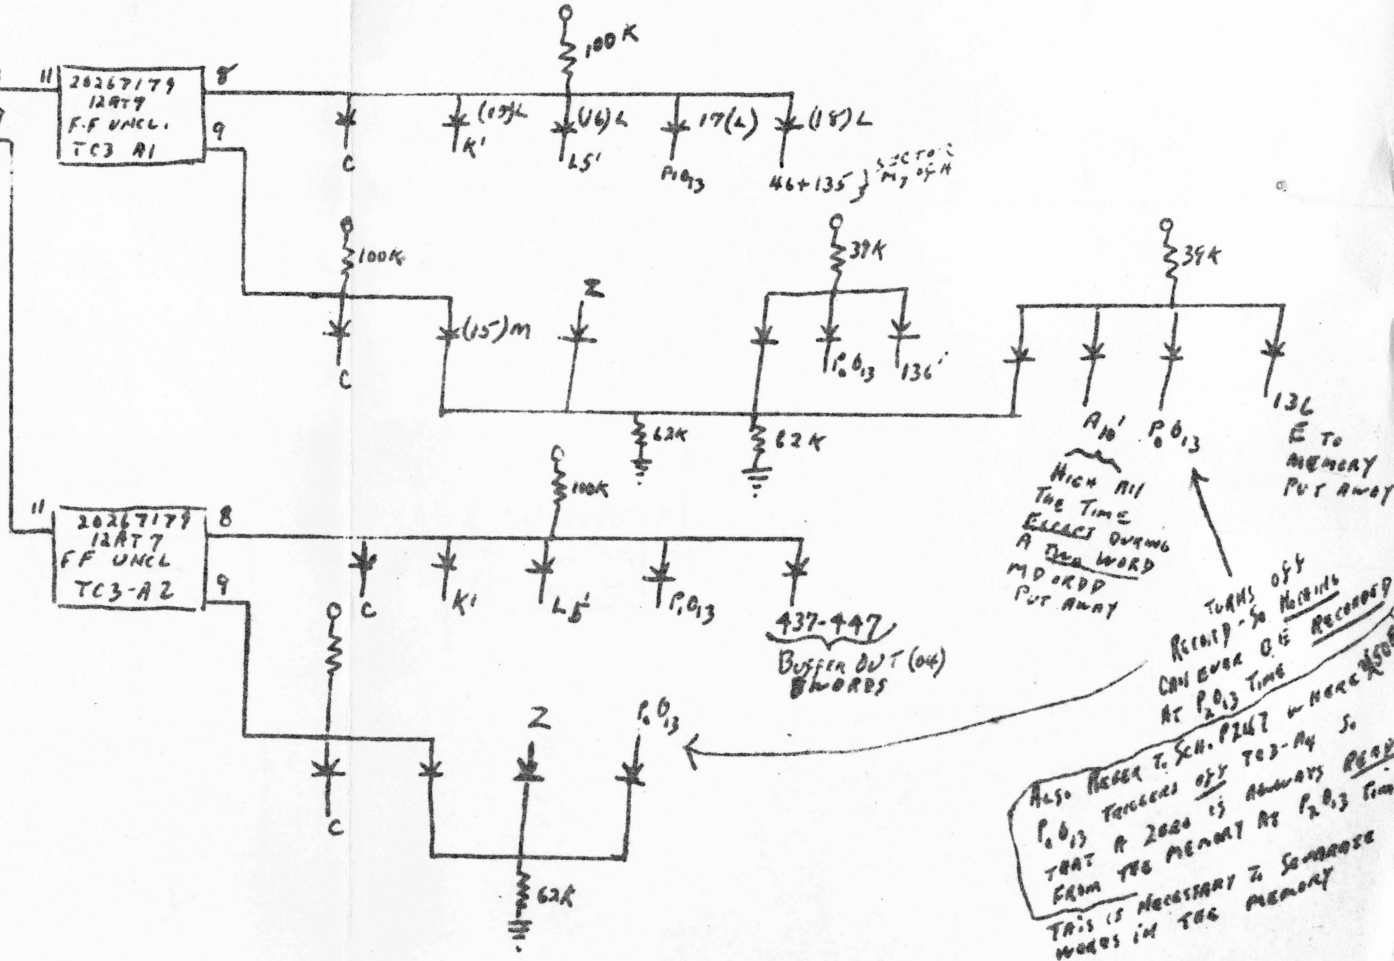 100K
11
20267179
12AT7
F.F UNCL.
TC3 A1
8
9
C
(19)L
K'
(16)L
L5'
17(L)
P₁θ₁₃
(18)L
46+135
100K
C
(15)M
Z
39K
P₀θ₁₃
136'
39K
62K
62K
A₁₀'
P₀θ₁₃
136
E TO
MEMORY
PUT AWAY
HIGH All
THE TIME
EXCEPT DURING
A TWO WORD
MD OR DD
PUT AWAY
11
20267179
12AT7
FF UNCL
TC3-A2
8
9
100K
C
K'
L5'
P₁θ₁₃
437-447
BUFFER OUT (04)
8 WORDS
C
Z
P₀θ₁₃
62K
TURNS OFF
RECORD-SO NOTHING
CAN EVER BE RECORDED
AT P₂θ₁₃ TIME
ALSO REFER TO SCH. WHERE
P₁θ₁₃ TRIGGERS OFF TC3-A4 SO
THAT A ZERO IS ALWAYS READ
FROM THE MEMORY AT P₂θ₁₃ TIME
THIS IS NECESSARY TO SEPARATE
WORDS IN THE MEMORY